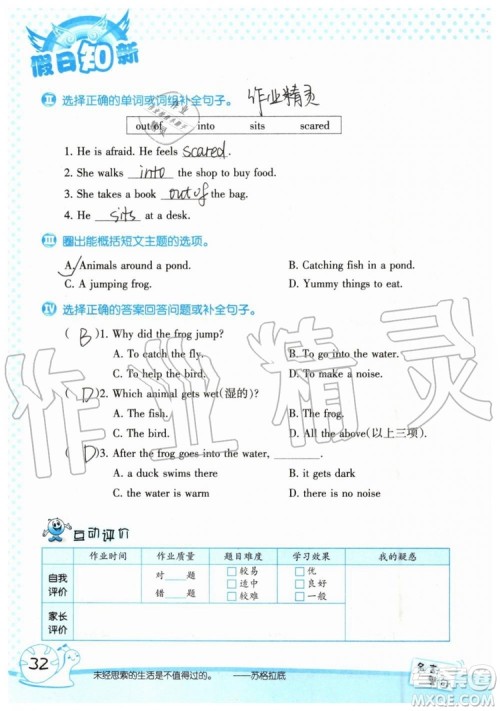 假日知新
II 选择正确的单词或词组补全句子。 作业精灵
out of into sits scared
1. He is afraid. He feels scared.
2. She walks into the shop to buy food.
3. She takes a book out of the bag.
4. He sits at a desk.
III 圈出能概括短文主题的选项。
A. Animals around a pond. B. Catching fish in a pond.
C. A jumping frog. D. A yummy fly.
IV 选择正确的答案回答问题或补全句子。
( B )1. Why did the frog jump?
A. To catch the fly. B. To go into the water.
C. To help the bird. D. To make noise.
( D )2. Which animal gets wet(湿的)?
A. The fish. B. The frog.
C. The bird. D. All the above(以上三项).
( D )3. After the frog goes into the water, ________.
A. a duck swims there B. it gets dark
C. the water is noisy D. it is quiet
作业精灵
互动评价
作业时间 作业质量 题目难度 学习效果 我的疑惑
自我评价 对____题 错____题 □较易 □适中 □较难 □优 □良好 □一般
家长评价
32
未经思索的生活是不值得过的。 ——苏格拉底
MXQE.COM